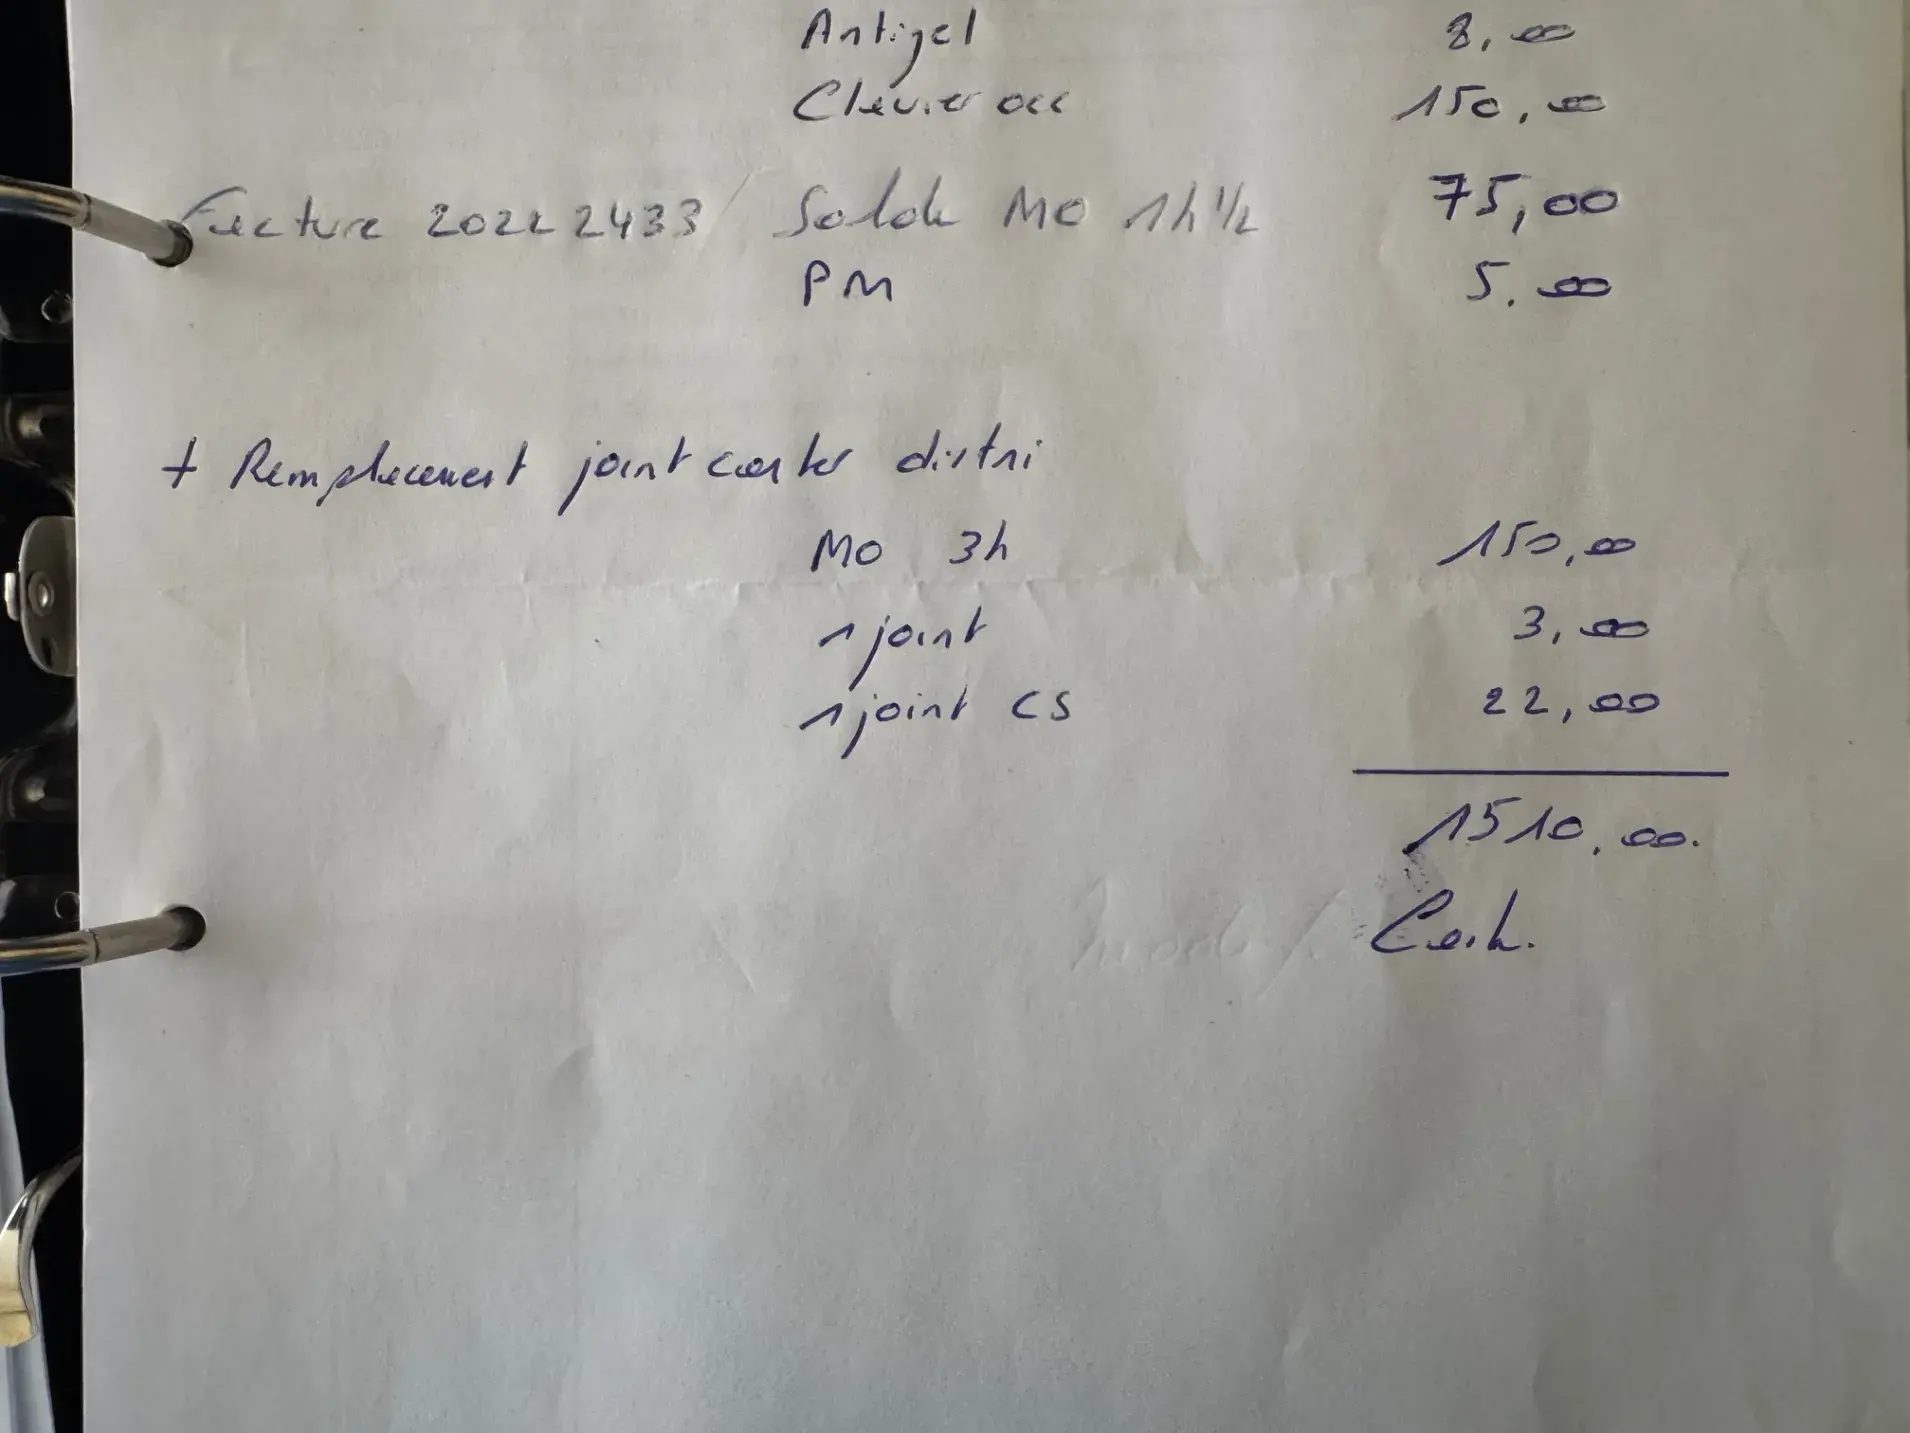 Antigel 8,00
Clavier occ 150,00
Facture 2022 2433 / Solde MO 1h 1/2 75,00
PM 5.00
+ Remplacement joint carter distri
MO 3h 150,00
1 joint 3,00
1 joint CS 22,00
1510,00.
Cash.